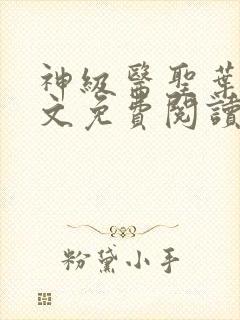 神級醫聖葉
文免費閱讀
粉黛小手